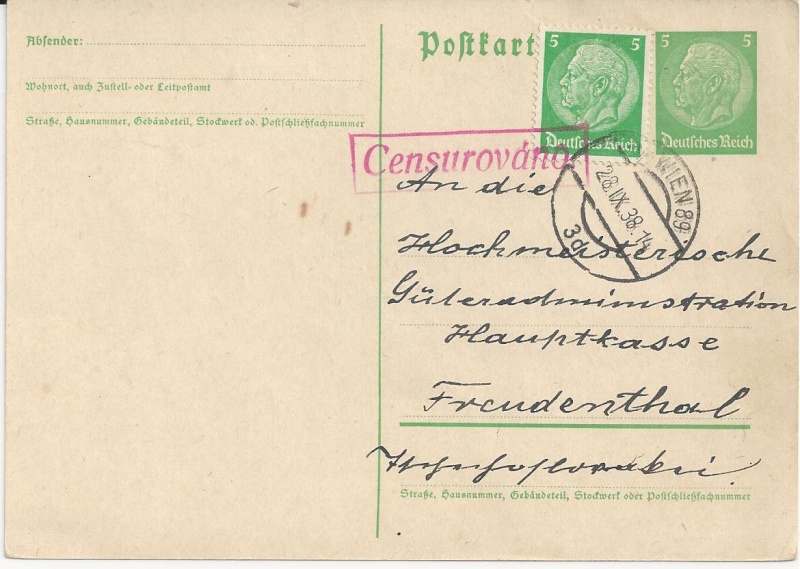 Absender:
Wohnort, auch Zustell- oder Leitpostamt
Straße, Hausnummer, Gebäudeteil, Stockwerk od. Postschließfachnummer
Postkart
5 5
Deutsches Reich
5 5
Deutsches Reich
Censurováno
WIEN 89
28.IX.38.14
3d
An die
Hochmeisterische
Güteradministration
Hauptkasse
Freudenthal
Tschechoslovakei.
Straße, Hausnummer, Gebäudeteil, Stockwerk oder Postschließfachnummer